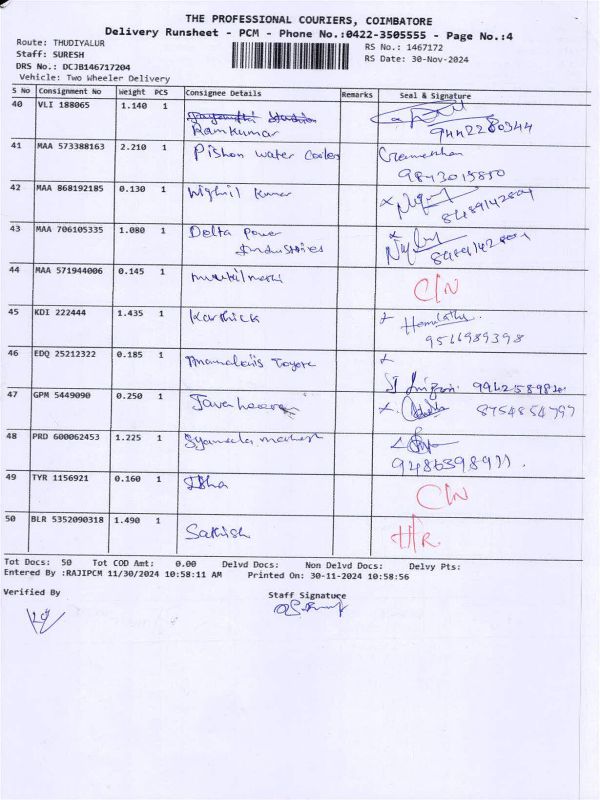 THE PROFESSIONAL COURIERS, COIMBATORE
Delivery Runsheet - PCM - Phone No.:0422-3505555 - Page No.:4
Route: THUDIYALUR
RS No.: 1467172
Staff: SURESH
RS Date: 30-Nov-2024
DRS No.: DCJB146717204
Vehicle: Two Wheeler Delivery
S No Consignment No Weight PCS Consignee Details Remarks Seal & Signature
40 VLI 188065 1.140 1
Ramkumar 9442280344
41 MAA 573388163 2.210 1 Pishon water Cooler
9843015850
42 MAA 868192185 0.130 1 Kumar
43 MAA 706105335 1.080 1 Delta Power
Industries
44 MAA 571944006 0.145 1 C/N
45 KDI 222444 1.435 1 Karthick
9566989398
46 EDQ 25212322 0.185 1 Toyota
47 GPM 5449090 0.250 1 8754854797
48 PRD 600062453 1.225 1
49 TYR 1156921 0.160 1 Isha C/N
50 BLR 5352090318 1.490 1 Sathish
Tot Docs: 50 Tot COD Amt: 0.00 Delvd Docs: Non Delvd Docs: Delvy Pts:
Entered By :RAJIPCM 11/30/2024 10:58:11 AM Printed On: 30-11-2024 10:58:56
Verified By
Staff Signature